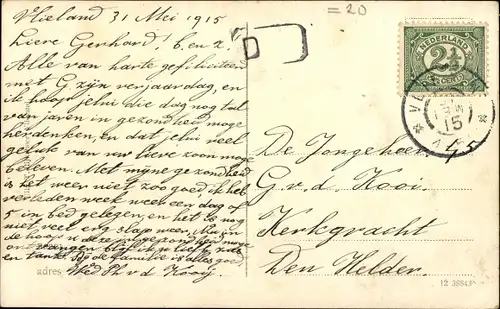 Vlieland 31 Mei 1915
Lieve Gerhard! b. en z.
Alle van harte gefeliciteerd
met G zijn verjaardag, en
ik hoop jelui die dag nog tal
van jaren in gezondheid moge
herdenken, en dat jelui veel
geluk van uw lieve zoon moge
beleven. Met mijne gezondheid
is het weer niet zoo goed, ik heb
verleden week weer een dag of
5 in bed gelegen, en het is nog
niet veel erg slap weer. Nu in
de hoop u deze in gezondheid moge
ontvangen
en tante. Bij de familie is alles goed
Wed Ph v d Kooij
adres
= 20
D
NEDERLAND
2½
CENT
15
De Jongeheer
G. v. d. Kooi.
Kerkgracht
Den Helder.
12 38843